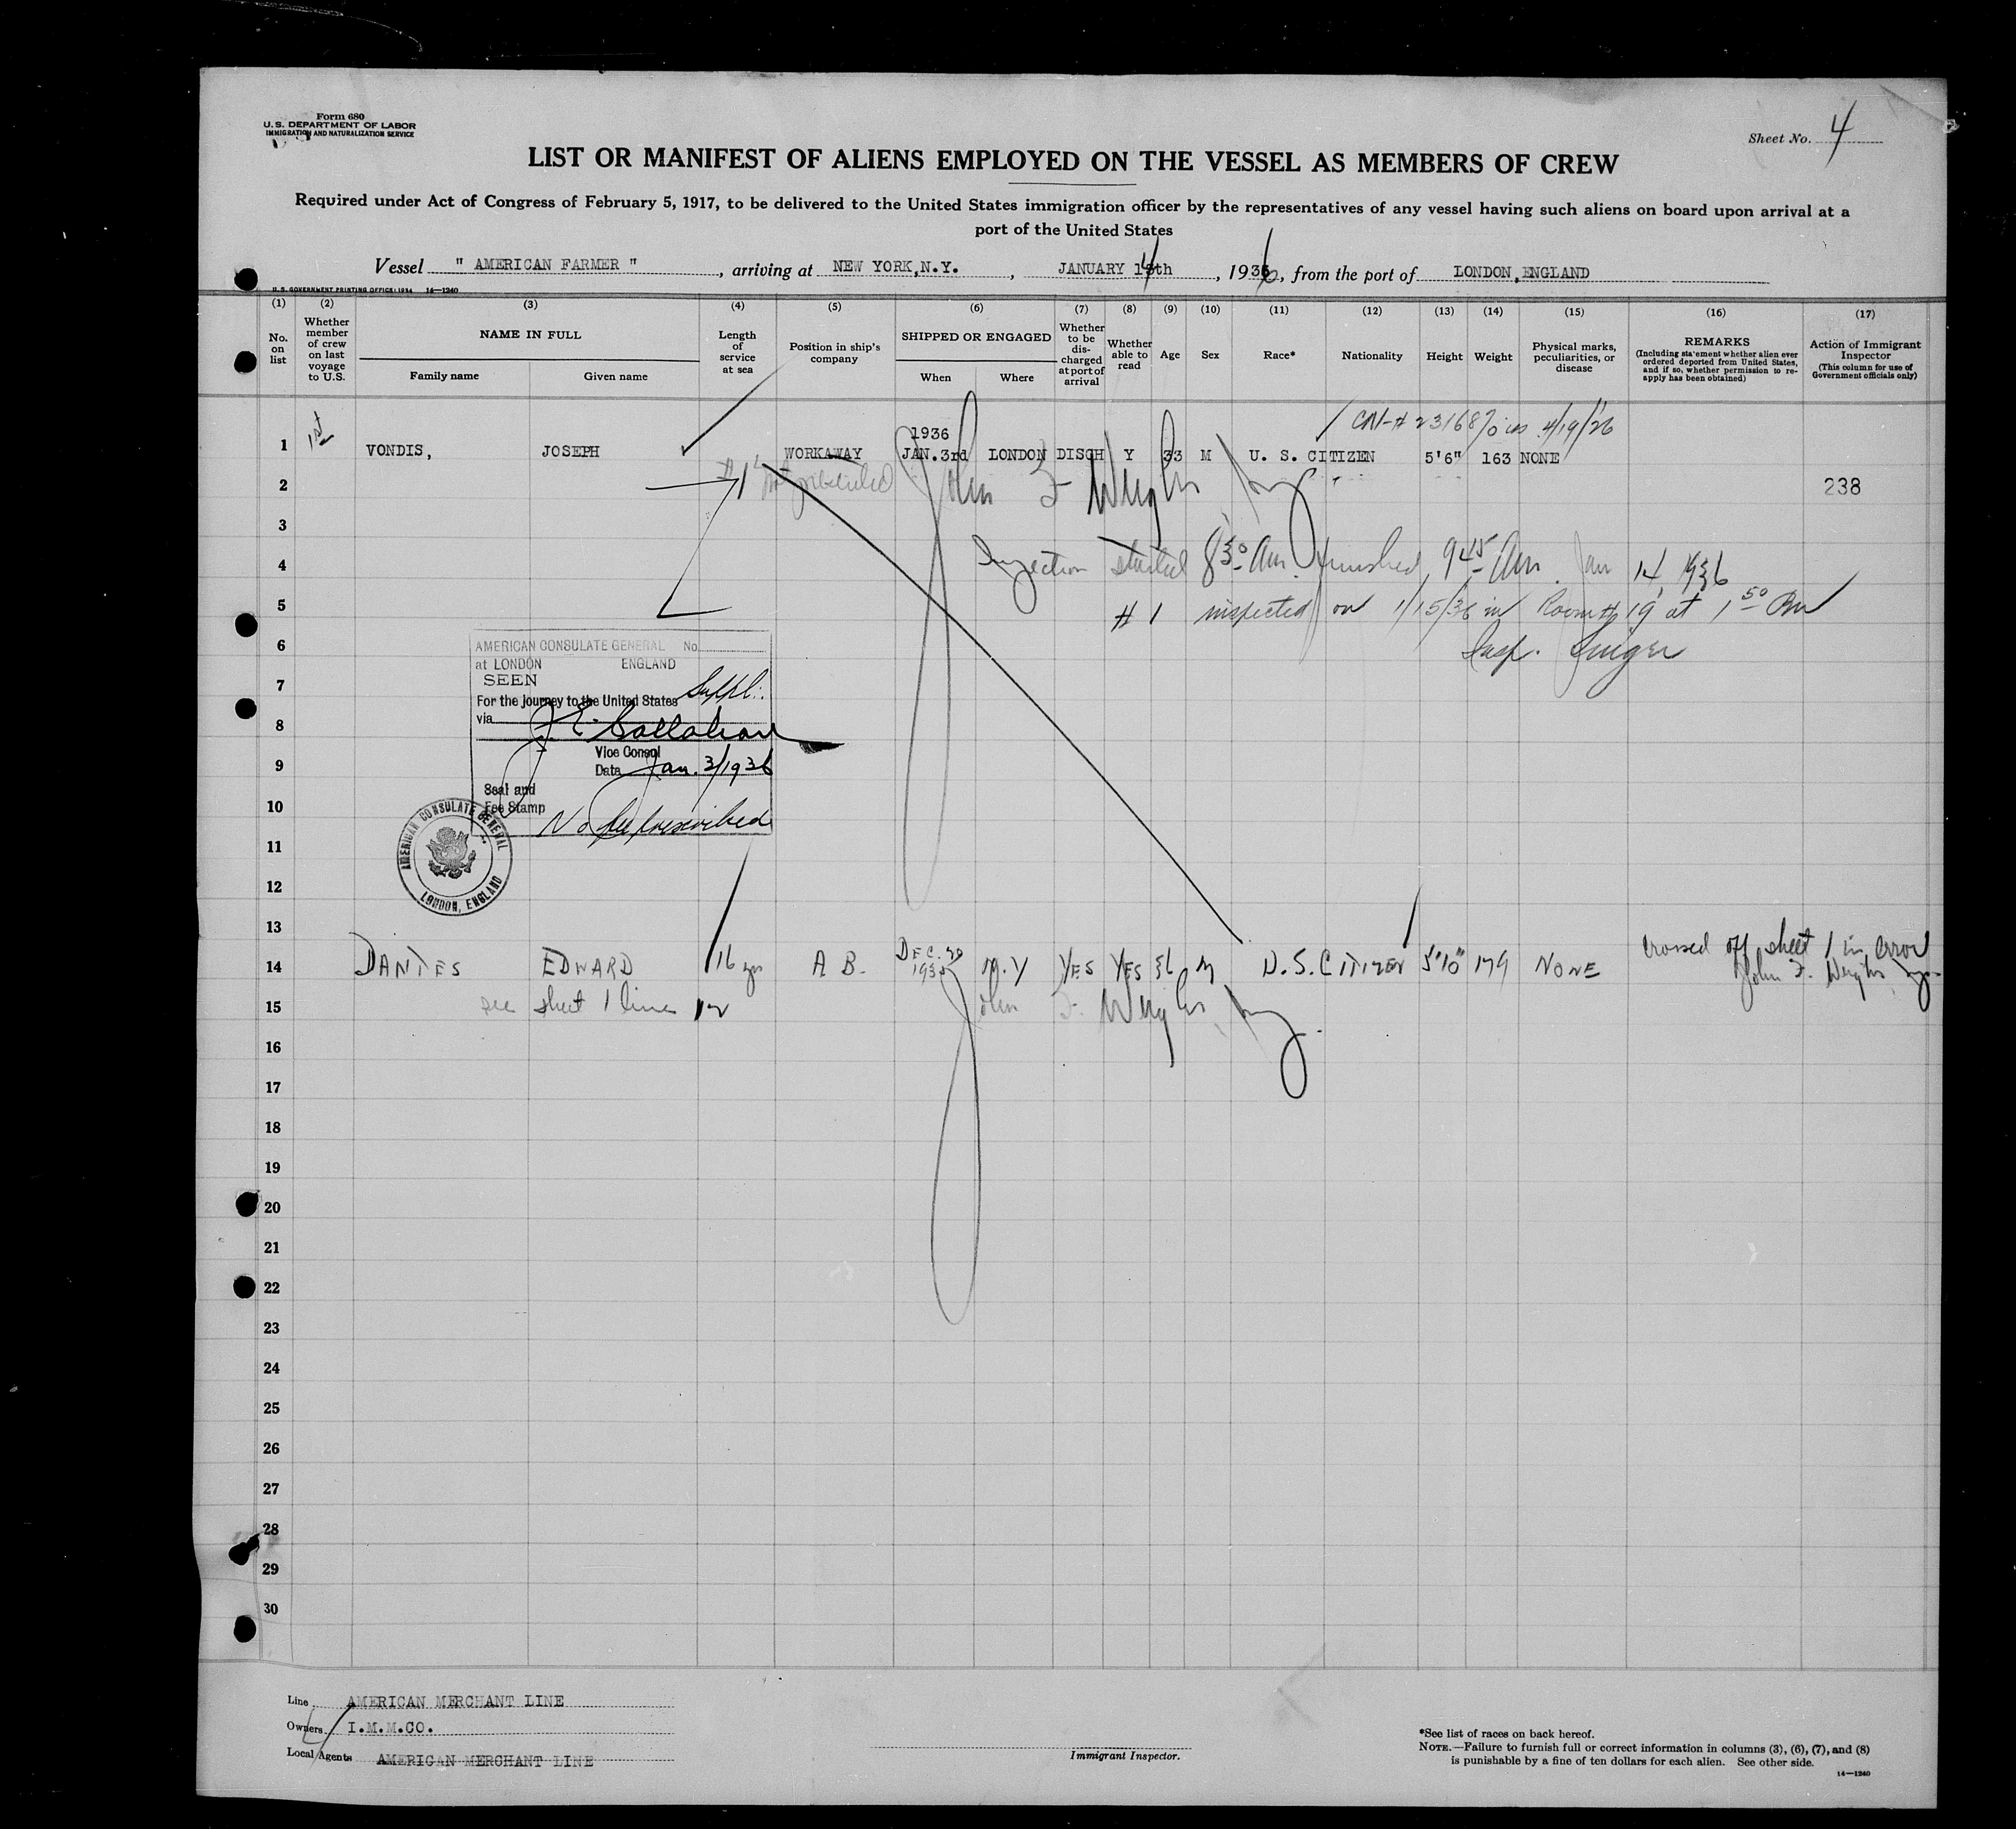 Form 680
U.S. DEPARTMENT OF LABOR
IMMIGRATION AND NATURALIZATION SERVICE
Sheet No. 4
LIST OR MANIFEST OF ALIENS EMPLOYED ON THE VESSEL AS MEMBERS OF CREW
Required under Act of Congress of February 5, 1917, to be delivered to the United States immigration officer by the representatives of any vessel having such aliens on board upon arrival at a
port of the United States
Vessel " AMERICAN FARMER ", arriving at NEW YORK,N.Y., JANUARY 14th, 1936, from the port of LONDON, ENGLAND
U. S. GOVERNMENT PRINTING OFFICE: 1934 14—1240
(1) (2) (3) (4) (5) (6) (7) (8) (9) (10) (11) (12) (13) (14) (15) (16) (17)
No. on list
Whether member of crew on last voyage to U.S.
NAME IN FULL
Family name Given name
Length of service at sea
Position in ship's company
SHIPPED OR ENGAGED
When Where
Whether to be discharged at port of arrival
Whether able to read
Age
Sex
Race*
Nationality
Height
Weight
Physical marks, peculiarities, or disease
REMARKS
(Including statement whether alien ever ordered deported from United States, and if so, whether permission to reapply has been obtained)
Action of Immigrant Inspector
(This column for use of Government officials only)
4/19/26
1936
1 1st VONDIS, JOSEPH WORKAWAY JAN.3rd LONDON DISCH Y 33 M U. S. CITIZEN 5'6" 163 NONE
2 #1 John F 238
3
4 Inspection started 8 30 Am. finished 9 45 Am. Jan 14 1936
5 #1 inspected on 1/15/36 in Room # 19 at 1 50 PM
6 Insp.
AMERICAN CONSULATE GENERAL No.
at LONDON ENGLAND
SEEN
For the journey to the United States Suppl.
via
J. E. Callahan
Vice Consul
Date Jan. 3/1936
Seal and
Fee Stamp
No fee prescribed
AMERICAN CONSULATE GENERAL
LONDON, ENGLAND
7
8
9
10
11
12
13
crossed off sheet 1 in error
14 DANTES EDWARD 16 yrs A B. DEC. 1935 N.Y YES YES 36 M U.S. CITIZEN 5'10" 179 NONE John F.
15 see sheet 1 line 12 John F.
16
17
18
19
20
21
22
23
24
25
26
27
28
29
30
Line AMERICAN MERCHANT LINE
Owners I.M.M.CO.
Local Agents AMERICAN MERCHANT LINE
Immigrant Inspector.
*See list of races on back hereof.
NOTE.—Failure to furnish full or correct information in columns (3), (6), (7), and (8)
is punishable by a fine of ten dollars for each alien. See other side.
14—1240